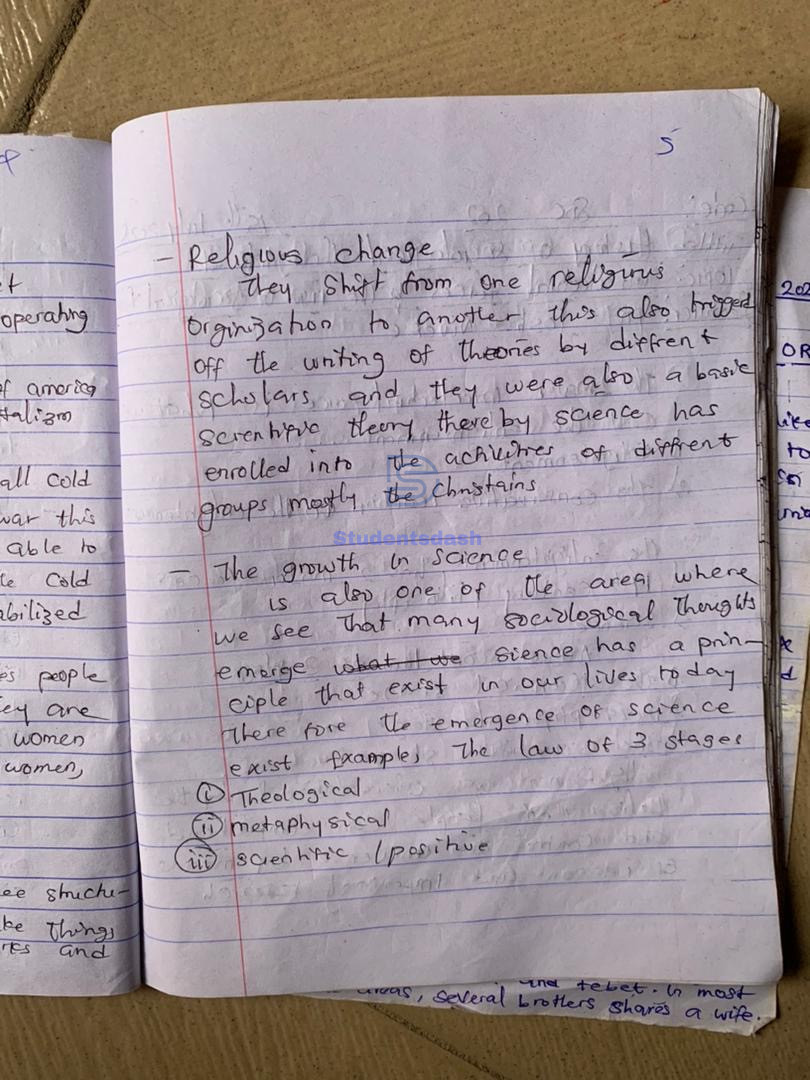 5
- Religious change
They shift from one religious
Orginization to another this also trigged
off the writing of theories by diffrent
scholars, and they were also a basic
scientific theory there by science has
enrolled into the activities of diffrent
groups mostly the Christains
Studentsdash
- The growth in science
is also one of the area, where
we see that many sociological thoughts
emerge what if we sience has a prin-
ciple that exist in our lives today
There fore the emergence of science
exist fxample, The law of 3 stages
(i) Theological
(ii) metaphysical
(iii) scientific / positive
operating
of america
all cold
war this
able to
cold
abilized
people
ey are
women
women,
ee structu-
ke things
and
202
OR
like
to
and tebet. In most
areas, several brotlers shares a wife.